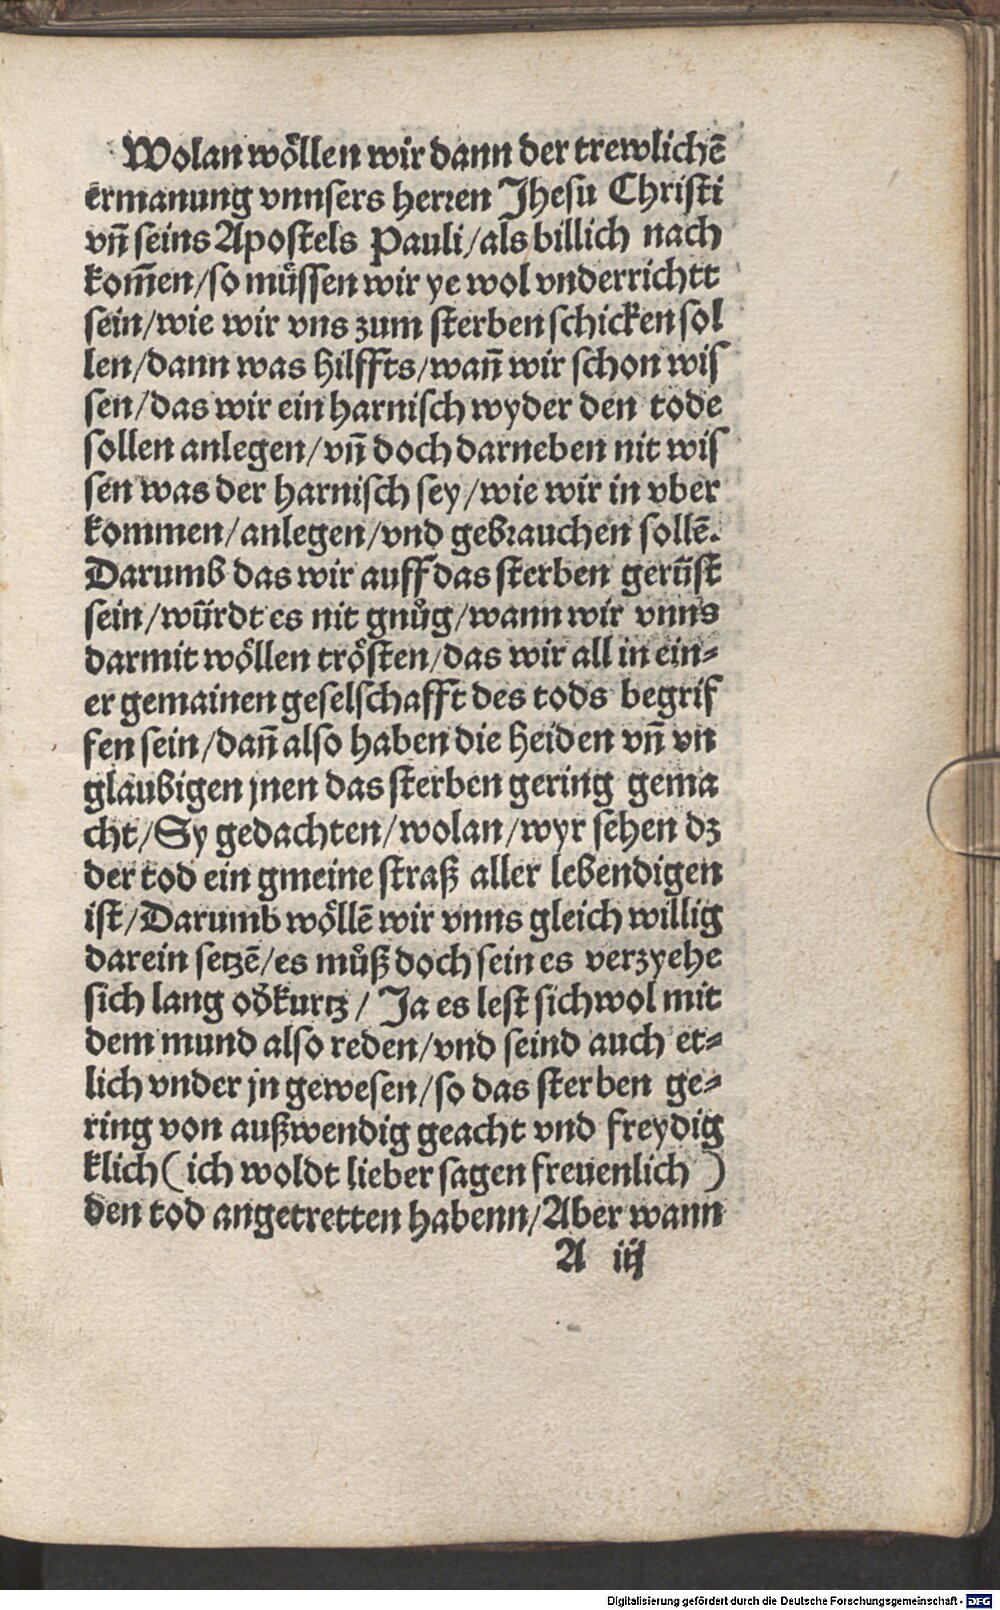 Wolan wöllen wir dann der trewlichẽ
ermanung vnnsers herren Jhesu Christi
vñ seins Apostels Pauli/als billich nach
kom̃en/so müssen wir ye wol vnderrichtt
sein/wie wir vns zum sterben schicken sol
len/dann was hilffts/wañ wir schon wis
sen/das wir ein harnisch wyder den tode
sollen anlegen/vñ doch darneben nit wis
sen was der harnisch sey/wie wir in vber
kommen/anlegen/vnd gebrauchen sollẽ.
Darumb das wir auff das sterben gerüst
sein/würdt es nit gnůg/wann wir vnns
darmit wöllen trösten/das wir all in ein⸗
er gemainen geselschafft des tods begrif
fen sein/dañ also haben die heiden vñ vn
glaubigen jnen das sterben gering gema
cht/Sy gedachten/wolan/wyr sehen dz
der tod ein gmeine straß aller lebendigen
ist/Darumb wöllẽ wir vnns gleich willig
darein setzẽ/es můß doch sein es verzyehe
sich lang oď kurtz/ Ja es lest sich wol mit
dem mund also reden/vnd seind auch et⸗
lich vnder jn gewesen/so das sterben ge⸗
ring von außwendig geacht vnd freydig
klich (ich woldt lieber sagen freuenlich)
den tod angetretten habenn/Aber wann
A iij
Digitalisierung gefördert durch die Deutsche Forschungsgemeinschaft - DFG